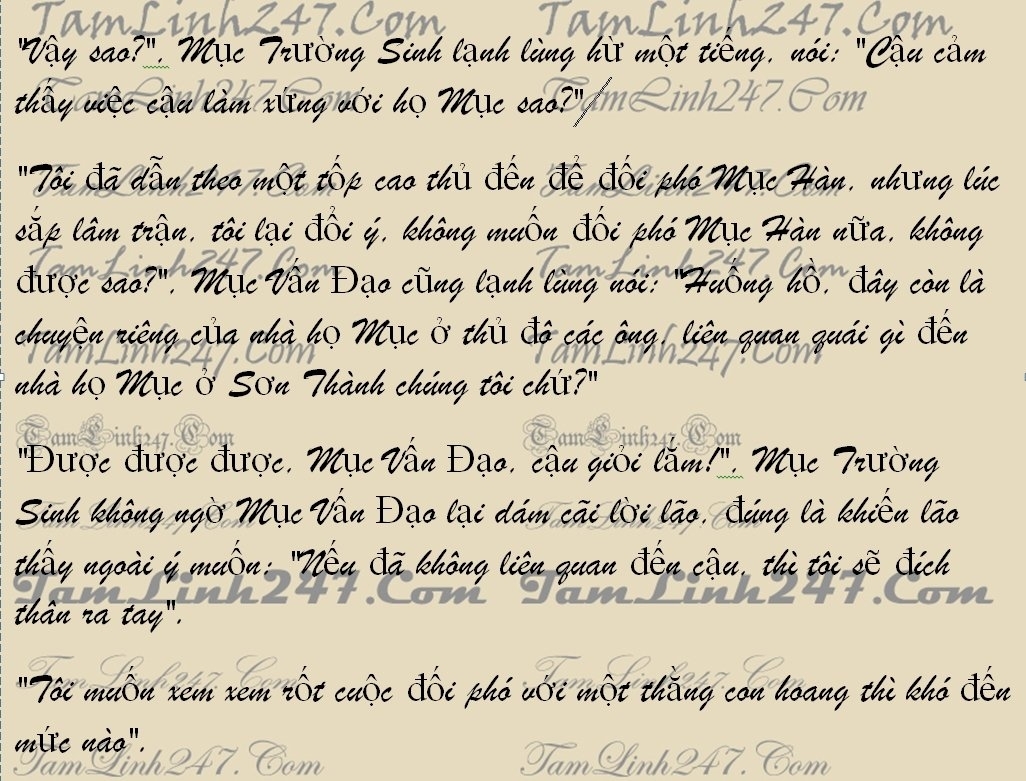 TamLinh247.Com TamLinh247.Com
"Vậy sao?", Mục Trường Sinh lạnh lùng hừ một tiếng, nói: "Cậu cảm
thấy việc cậu làm xứng với họ Mục sao?"/
TamLinh247.Com TamLinh247.Com
"Tôi đã dẫn theo một tốp cao thủ đến để đối phó Mục Hàn, nhưng lúc
TamLinh247.Com TamLinh247.Com
sắp lâm trận, tôi lại đổi ý, không muốn đối phó Mục Hàn nữa, không
TamLinh247.Com TamLinh247.Com
được sao?", Mục Vấn Đạo cũng lạnh lùng nói: "Huống hồ, đây còn là
chuyện riêng của nhà họ Mục ở thủ đô các ông, liên quan quái gì đến
TamLinh247.Com TamLinh247.Com
nhà họ Mục ở Sơn Thành chúng tôi chứ?"
TamLinh247.Com TamLinh247.Com
"Được được được, Mục Vấn Đạo, cậu giỏi lắm!", Mục Trường
Sinh không ngờ Mục Vấn Đạo lại dám cãi lời lão, đúng là khiến lão
TamLinh247.Com TamLinh247.Com
thấy ngoài ý muốn: "Nếu đã không liên quan đến cậu, thì tôi sẽ đích
TamLinh247.Com TamLinh247.Com
thân ra tay".
TamLinh247.Com TamLinh247.Com
"Tôi muốn xem xem rốt cuộc đối phó với một thằng con hoang thì khó đến
mức nào".
TamLinh247.Com TamLinh247.Com